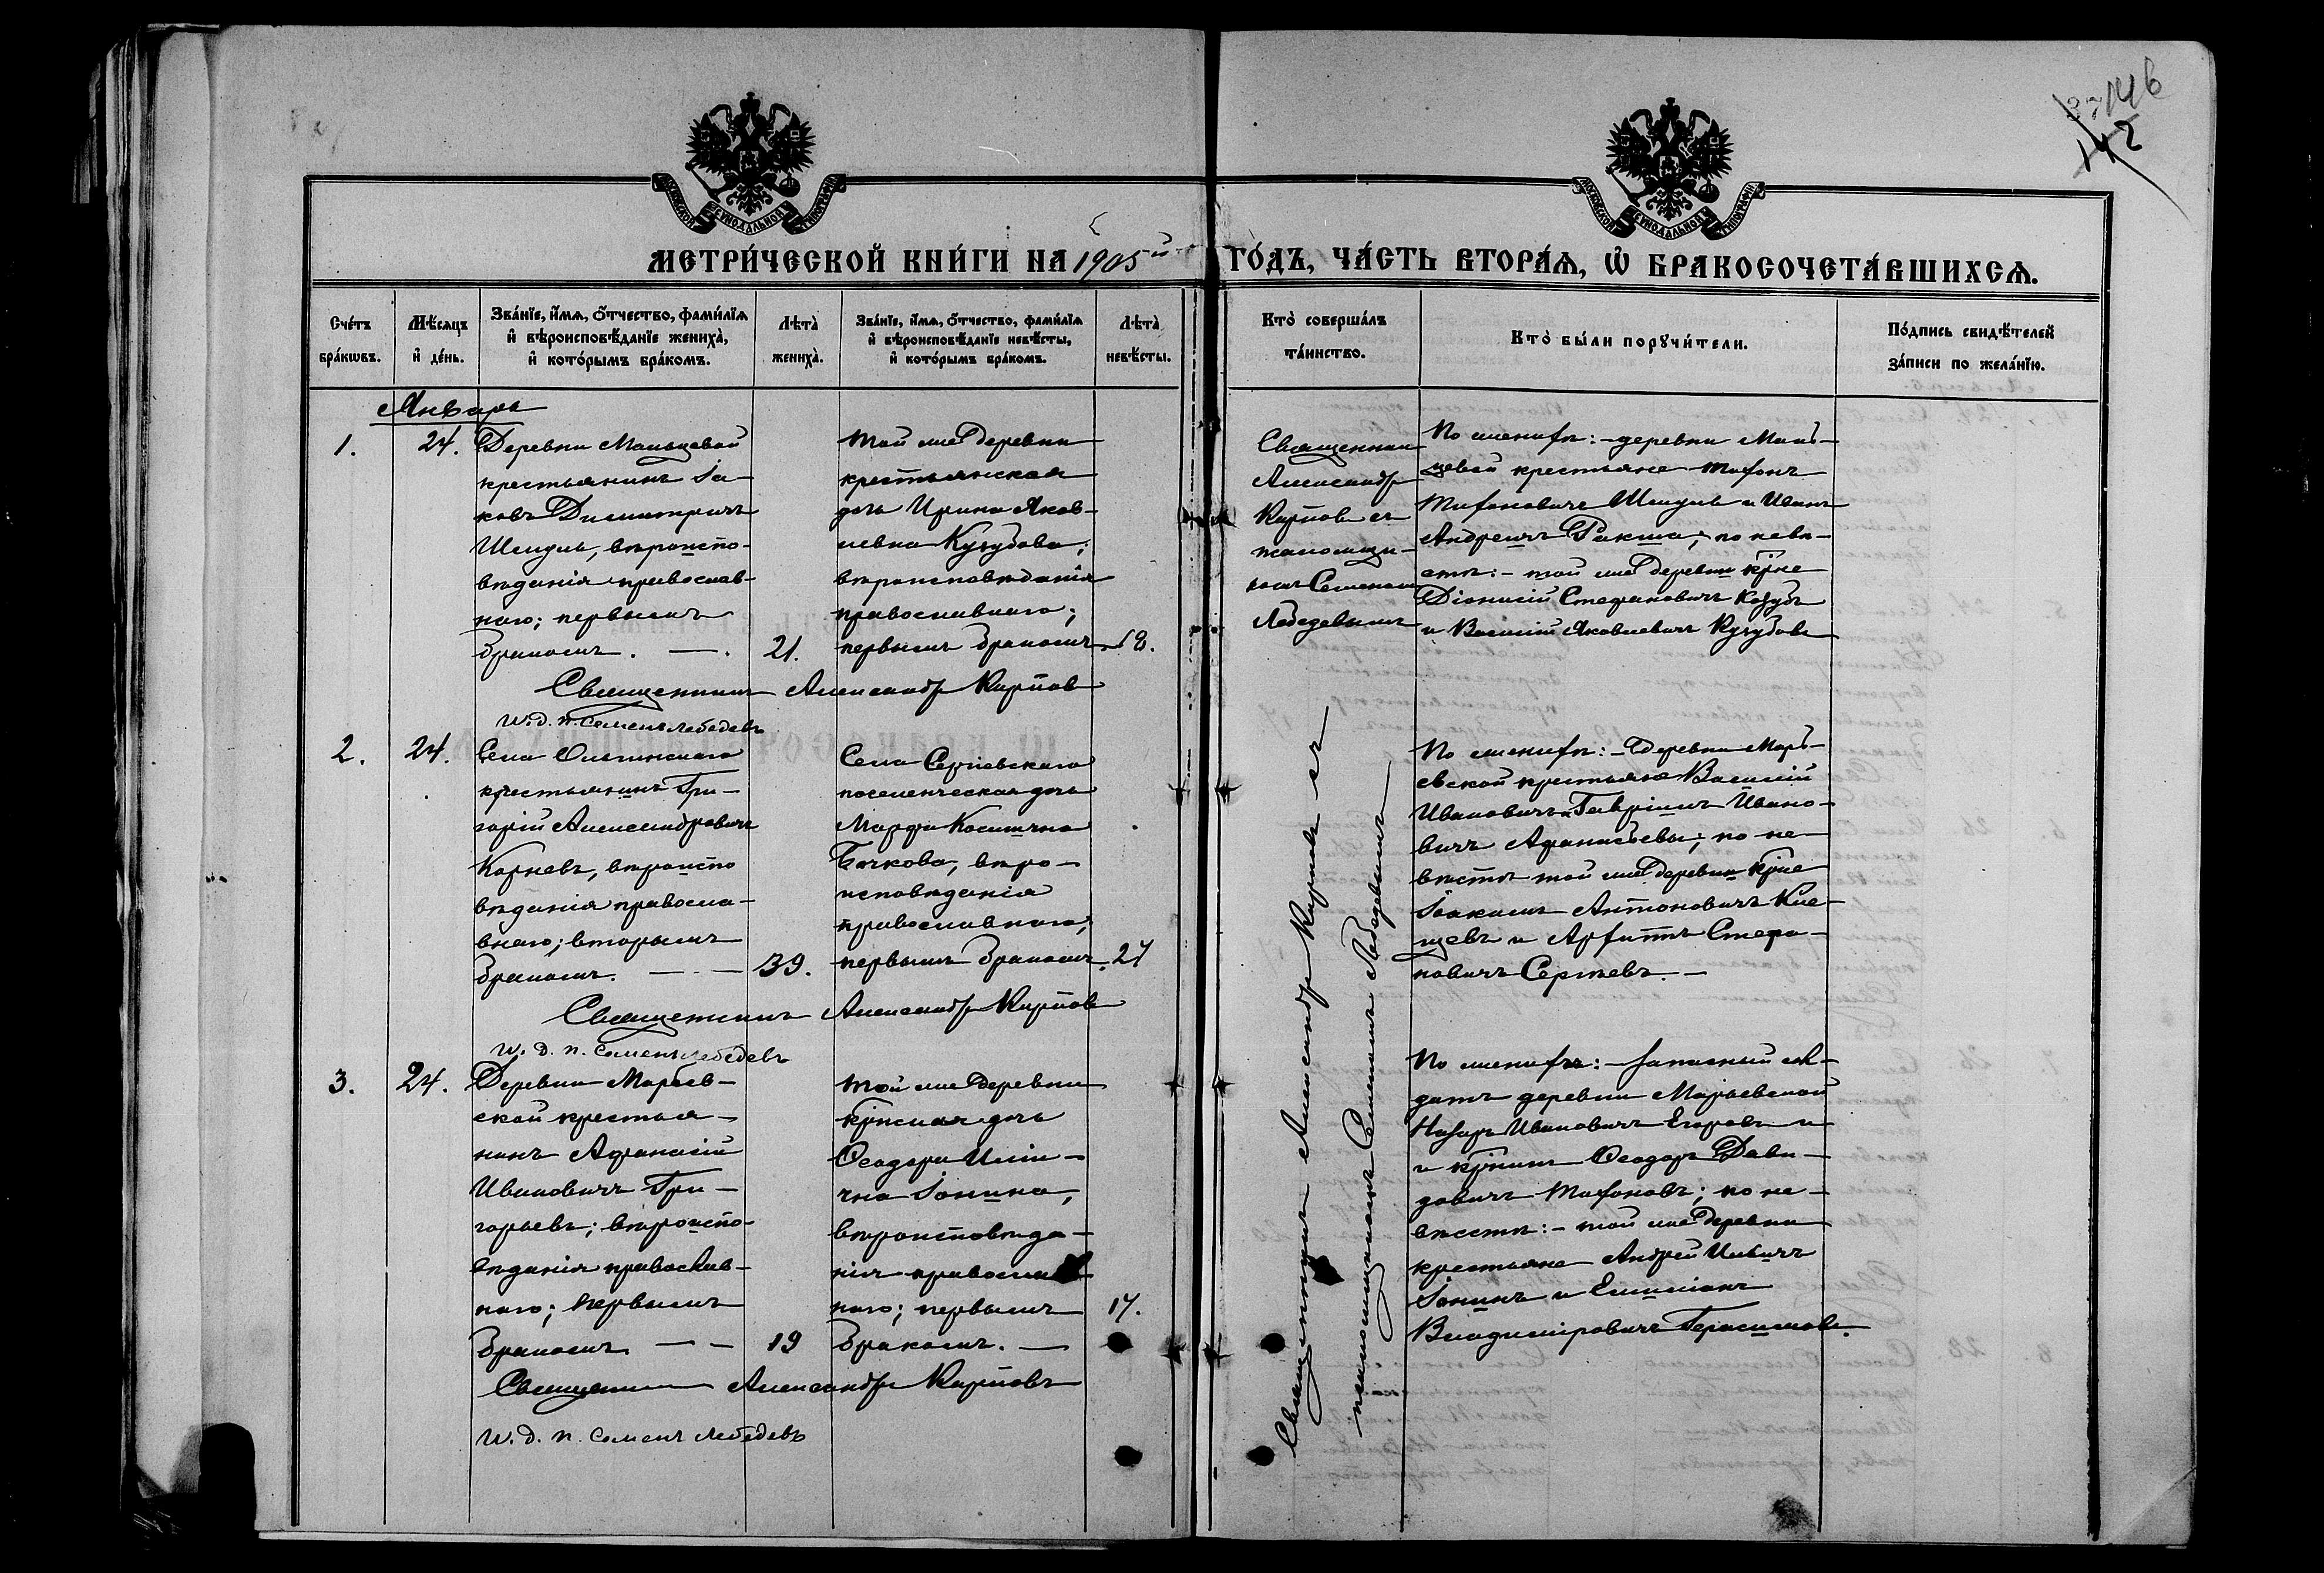 146
142
МОСКОВСКОЙ СѴНОДАЛЬНОЙ ТИПОГРАФІИ
МОСКОВСКОЙ СѴНОДАЛЬНОЙ ТИПОГРАФІИ
МЕТРИ́ЧЕСКОЙ КНИ́ГИ НА 1905й ГО́ДЪ, ЧА́СТЬ ВТОРА́Ѧ, Ѡ҆ БРАКОСОЧЕТА́ВШИХСѦ.
Сче́тъ бра́кѡвъ.
Мѣ́сѧцъ и҆ де́нь.
Зва́нїе, и҆́мѧ, ѻ҆́тчество, фами́лїѧ и҆ вѣроисповѣ́данїе жениха̀, и҆ кото́рымъ бра́комъ.
Лѣта̀ жениха̀.
Зва́нїе, и҆́мѧ, ѻ҆́тчество, фами́лїѧ и҆ вѣроисповѣ́данїе невѣ́сты, и҆ кото́рымъ бра́комъ.
Лѣта̀ невѣ́сты.
Кто̀ соверша́лъ та́инство.
Кто̀ бы́ли порꙋчи́тели.
По́дпись свидѣ́телей за́писи по жела́нїю.
Январь
1.
24.
Деревни Мальцевой
крестьянинъ Іа-
ковъ Димитричъ
Шейдуль, вѣроиспо-
вѣданія православ-
наго; первымъ
бракомъ. — .
21.
Той же деревни
крестьянская
дочь Ирина Яков-
левна Кузубова;
вѣроисповѣданія
православнаго;
первымъ бракомъ.
18.
Священникъ
Александръ
Карповъ съ
псаломщи-
комъ Семеномъ
Лебедевымъ
По женихѣ: – деревни Маль-
цевой крестьяне Тифонъ
Тифоновичъ и Иванъ
Андреичъ Ракша; по невѣ-
стѣ: – той же деревни кр҃не
Діонисій Стефановичъ Козубъ
и Василій Яковлевичъ Кузубовъ
Священникъ Александръ Карповъ
и. д. п. Семенъ Лебедевъ
2.
24.
Села Ольгинскаго
крестьянинъ Гри-
горій Александровичъ
Корневъ, вѣроиспо
вѣданія правосла-
внаго; вторымъ
бракомъ. — . —
39.
Села Сергіевскаго
поселенческая дочь
Марфа Косьмична
Бочкова, вѣро-
исповѣданія
православнаго,
первымъ бракомъ.
27
Священникъ Александръ Карповъ съ
псаломщикомъ Семеномъ Лебедевымъ
По женихѣ: – деревни Марь-
евской крестьяне Василій
Ивановичъ и Гавріилъ Ивано-
вичъ Афанасьевы; по не-
вѣстѣ той же деревни кр҃не
Іоакимъ Антоновичъ Кле-
щевъ и Архиппъ Стефа-
новичъ Сергѣевъ. —
Священникъ Александръ Карповъ
и. д. п. Семенъ Лебедевъ
3.
24.
Деревни Марьев-
ской крестья-
нинъ Афанасій
Ивановичъ Гри-
горьевъ; вѣроиспо-
вѣданія православ-
наго; первымъ
бракомъ. — —
19
Той же деревни
кр҃нская дочь
Ѳеодора Ильи-
чна Іонина,
вѣроисповѣда-
нія православ-
наго; первымъ
бракомъ. —
17.
По женихѣ: – запасный сол-
датъ деревни Марьевской
Назаръ Ивановичъ Егоровъ и
и кр҃нинъ Ѳеодоръ Дави-
довичъ Тифоновъ; по не-
вѣстѣ: – той же деревни
крестьяне Андрей Ильичъ
Іонинъ и Емиліанъ
Владиміровичъ Герасимовъ.
Священникъ Александръ Карповъ
и. д. п. Семенъ Лебедевъ